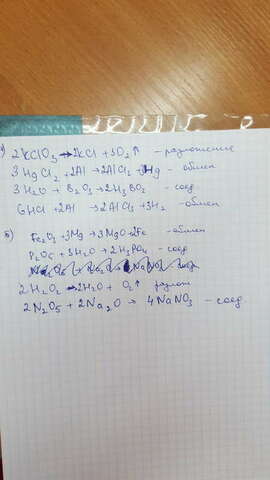 2KClO3 → 2KCl + 3O2↑ - разложение
3HgCl2 + 2Al → 2AlCl3 + 3Hg - обмен
3H2O + B2O3 → 2H3BO3 - соед
6HCl + 2Al → 2AlCl3 + 3H2 - обмен
б)
Fe2O3 + 3Mg → 3MgO + 2Fe - обмен
P2O5 + 3H2O → 2H3PO4 - соед
2H2O2 → 2H2O + O2↑ разлож
2N2O5 + 2Na2O → 4NaNO3 - соед